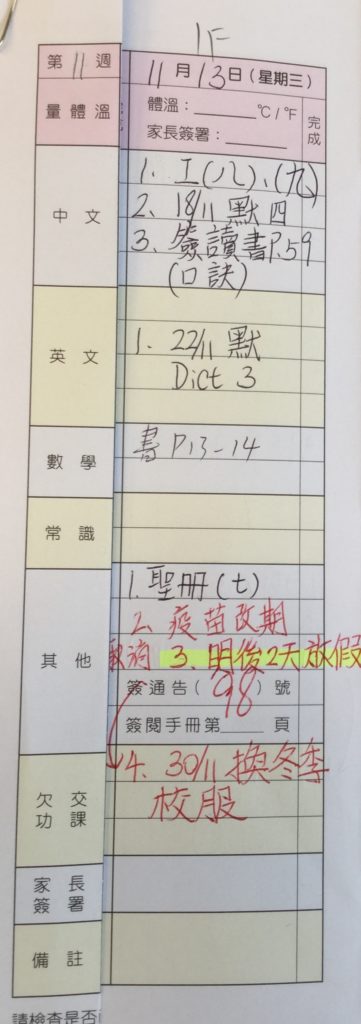 1F
第11週
11月13日(星期三)
量體溫
體溫：________ ℃/℉
家長簽署：________
完成
中文
1. 工(八)、(九)
2. 18/11 默四
3. 簽讀書P.59
(口訣)
英文
1. 22/11 默
Dict 3
數學
書 P13-14
常識
其他
1. 聖冊(七)
2. 疫苗改期
取消 3. 明後2天放假
簽通告(98)號
簽閱手冊第____頁
4. 30/11 換冬季
校服
欠交功課
家長簽署
備註
請檢查是否